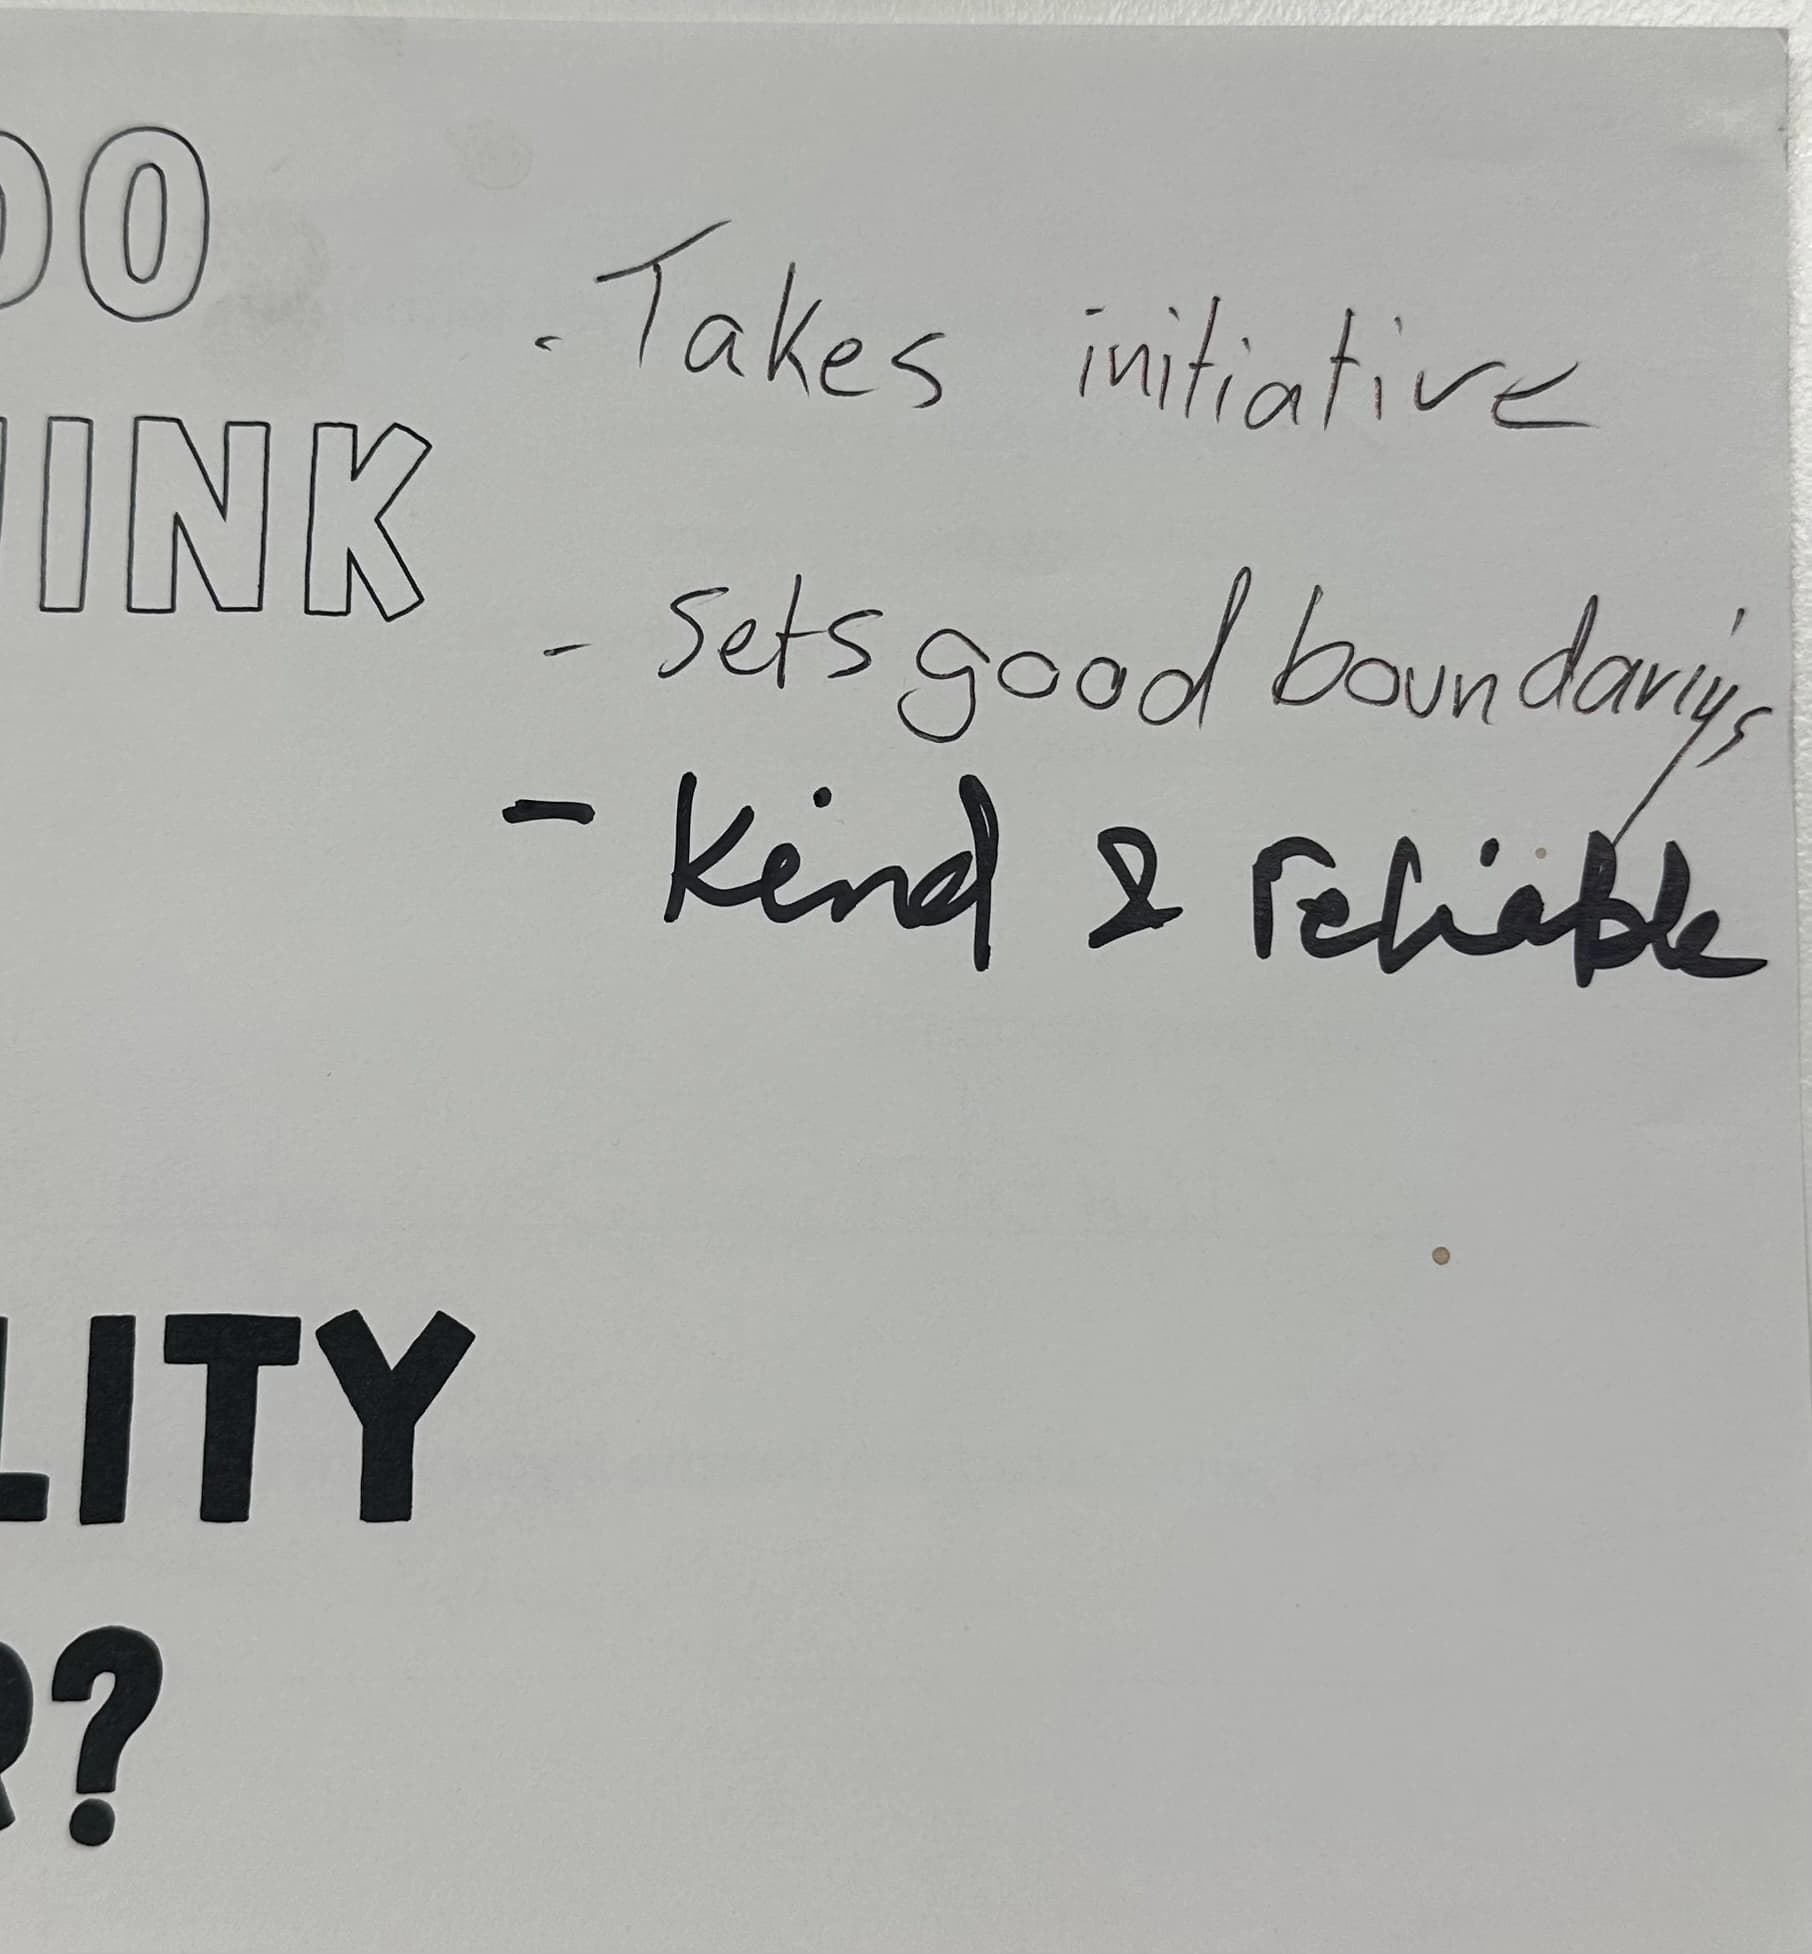 DO
INK
- Takes initiative
- Sets good boundariy's
- Kind & reliable
LITY
R?